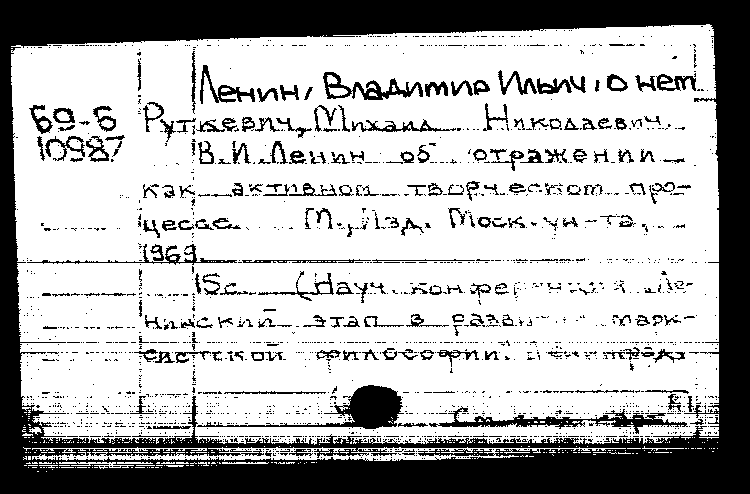 Ленин, Владимир Ильич, о нем
69-6 Руткевич, Михаил Николаевич.
10987 В.И.Ленин об отражении
как активном творческом про-
цессе. М., Изд. Моск. ун-та,
1969.
15с. (Науч. конференция "Ле-
нинский этап в развитии марк-
систской философии". Ленинград,
См. след. карт.